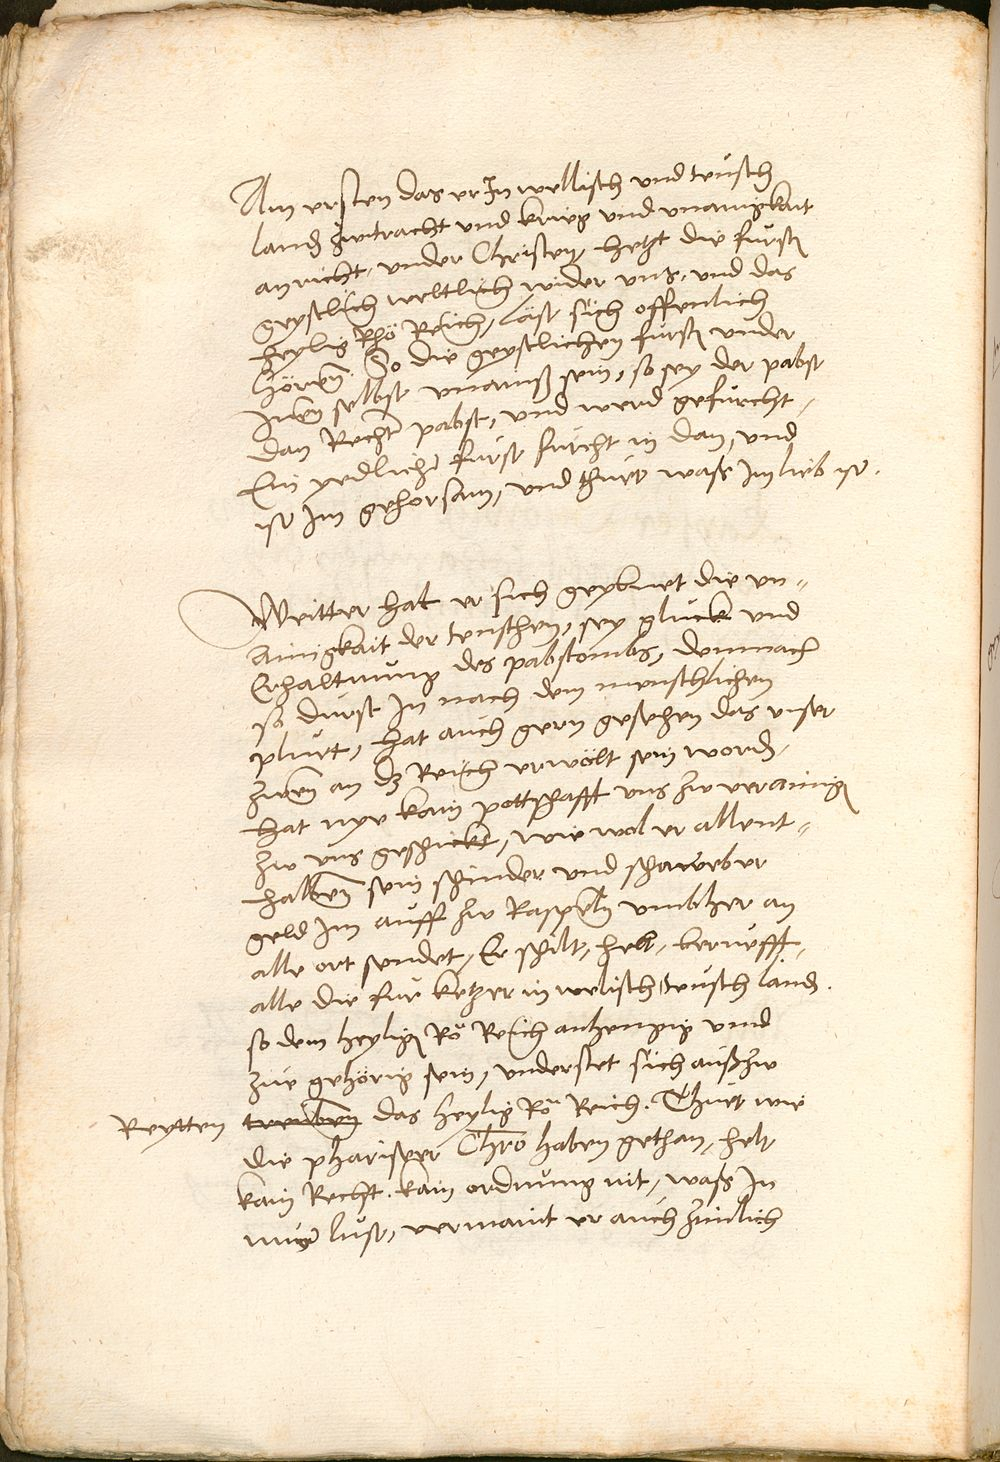 Am ersten das er In wellisch und teusch
land zwitracht und krieg und unainigkait
anricht, under Christen, hetzt die furst
geystlich weltlich wider uns, und das
heylig Rhö Reich, läst sich offenlich
hören. So die geystlichen furst under
Inen selbst unainß sein, so sey der pabst
dan Recht pabst, und werd gefürcht,
Ein yedlicher fürst fürcht in dan, und
ist Im gehorsam, und thuet waß Im lieb ist.
Weitter hat er sich geybuet die un-
ainigkait der teuschen, sey gluck und
Erhaltnung des pabstombs, demnach
so durst In nach dem menschlichen
pluet, hat auch gern gesehen das unser
zwen an dz Reich erwölt sein word,
hat nye kain pottschafft uns zw verainig
zw uns geschickt, wie wol er allent-
halben sein schinder und schaweber
geld Im auff zw Raspeln umbher an
alle ort sendet, Er schilt, helt, berüefft,
alle die fur ketzer in welisch teusch land.
so dem heylig Rö Reich anhengig und
zue gehörig sein, understet sich außzw
Reytten treiben das heylig Rö Reich. Thuet wie
die phariseer Christo haben gethan, helt
kain Recht. kain ordnung nit, waß In
nuer lust, vermaint er auch zimlich